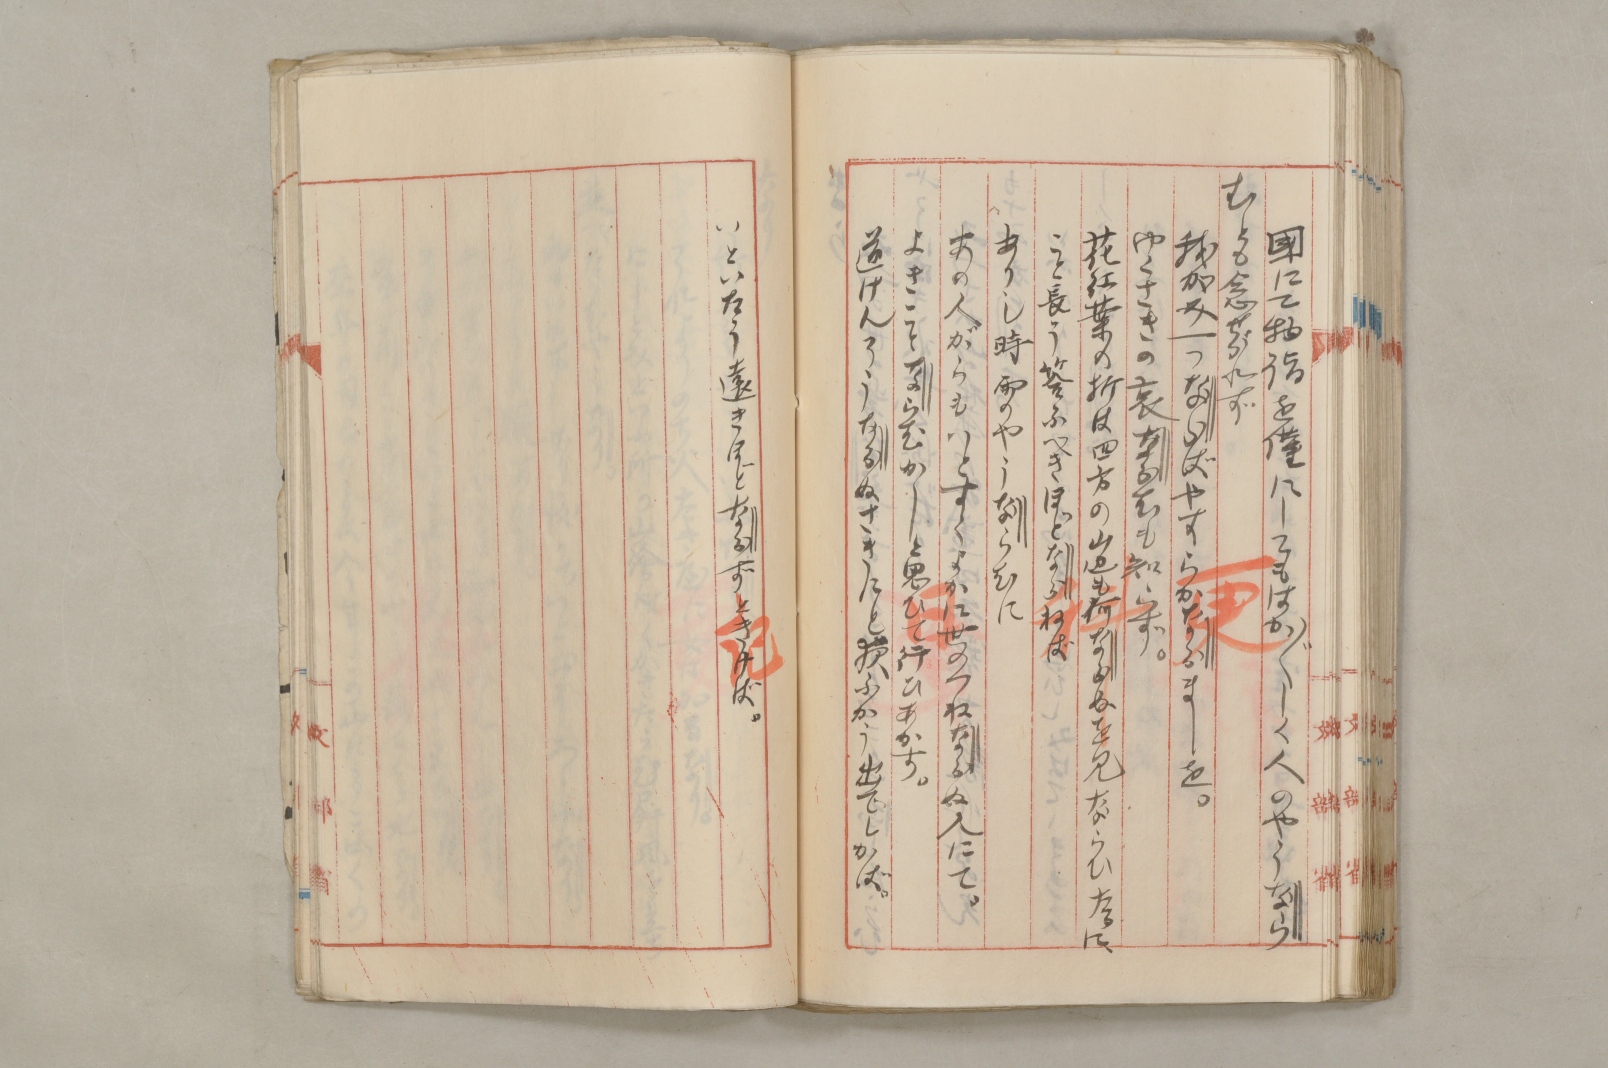 國にて物詣を僅にしてもはか〴〵しく人のやうなら
むとも念ぜられず
我が身一つならばやすらかならましを。
ゆくさきの哀ならむも知らず。
花紅葉の折は四方の山邊も何ならぬを見ならひたるに、
こと長う答ふべきほどならねば
ありし時雨のやうならむに
あの人がらもいとすくよかに世のつねならぬ人にて。
よきことならむかしと思ひて行ひあかす。
道けんそうならぬさきにと夜ふかう出でしかば。
いといたう遠きほどならずときけば。
文部省